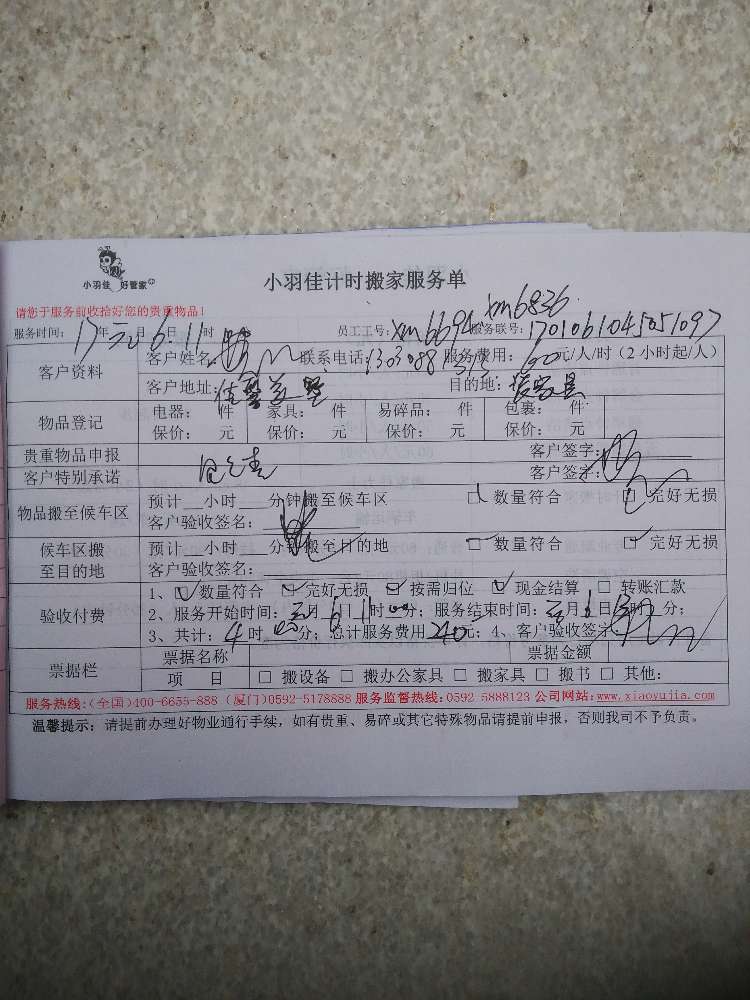 小羽佳 好管家
小羽佳计时搬家服务单
请您于服务前收拾好您的贵重物品！
服务时间：17年元月6日11时 员工工号：xm6694 xm6836 服务联号：170106104505109７
客户资料 客户姓名： 联系电话： 服务费用：60元/人/时（2小时起/人）
客户地址： 目的地：
物品登记 电器： 件 家具： 件 易碎品： 件 包裹： 件
保价： 元 保价： 元 保价： 元 保价： 元
贵重物品申报 客户签字：
客户特别承诺 客户签字：
物品搬至候车区 预计 小时 分钟搬至候车区 □ 数量符合 □ 完好无损
客户验收签名：
候车区搬至目的地 预计 小时 分钟搬至目的地 □ 数量符合 □ 完好无损
客户验收签名：
验收付费 1、□数量符合 □完好无损 □按需归位 □现金结算 □ 转账汇款
2、服务开始时间：元月6日11时00分；服务结束时间：元月6日 时 分；
3、共计：4时 分；总计服务费用240元；4、客户验收签字
票据栏 票据名称 票据金额
项 目 □ 搬设备 □ 搬办公家具 □ 搬家具 □ 搬书 □ 其他:
服务热线:(全国)400-6655-888 (厦门)0592-5178888 服务监督热线:0592-5888123 公司网站:www.xiaoyujia.com
温馨提示：请提前办理好物业通行手续，如有贵重、易碎或其它特殊物品请提前申报，否则我司不予负责。